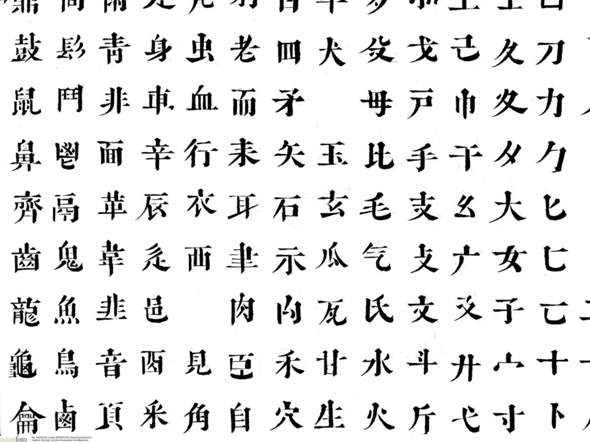 刀力勹匕匚匸十卜
夂夊夕大女子宀寸
己巾干幺广廴廾弋
戈戶手支攴文斗斤
殳毋比毛气氏水火
犬玉玄瓜瓦甘生
皿矛矢石示禸禾穴
羽老而耒耳聿肉臣自
虫血行衣襾見角
身車辛辰辵邑酉釆
雨靑非面革韋韭音頁
高髟鬥鬯鬲鬼魚鳥鹵
鼎鼓鼠鼻齊齒龍龜龠